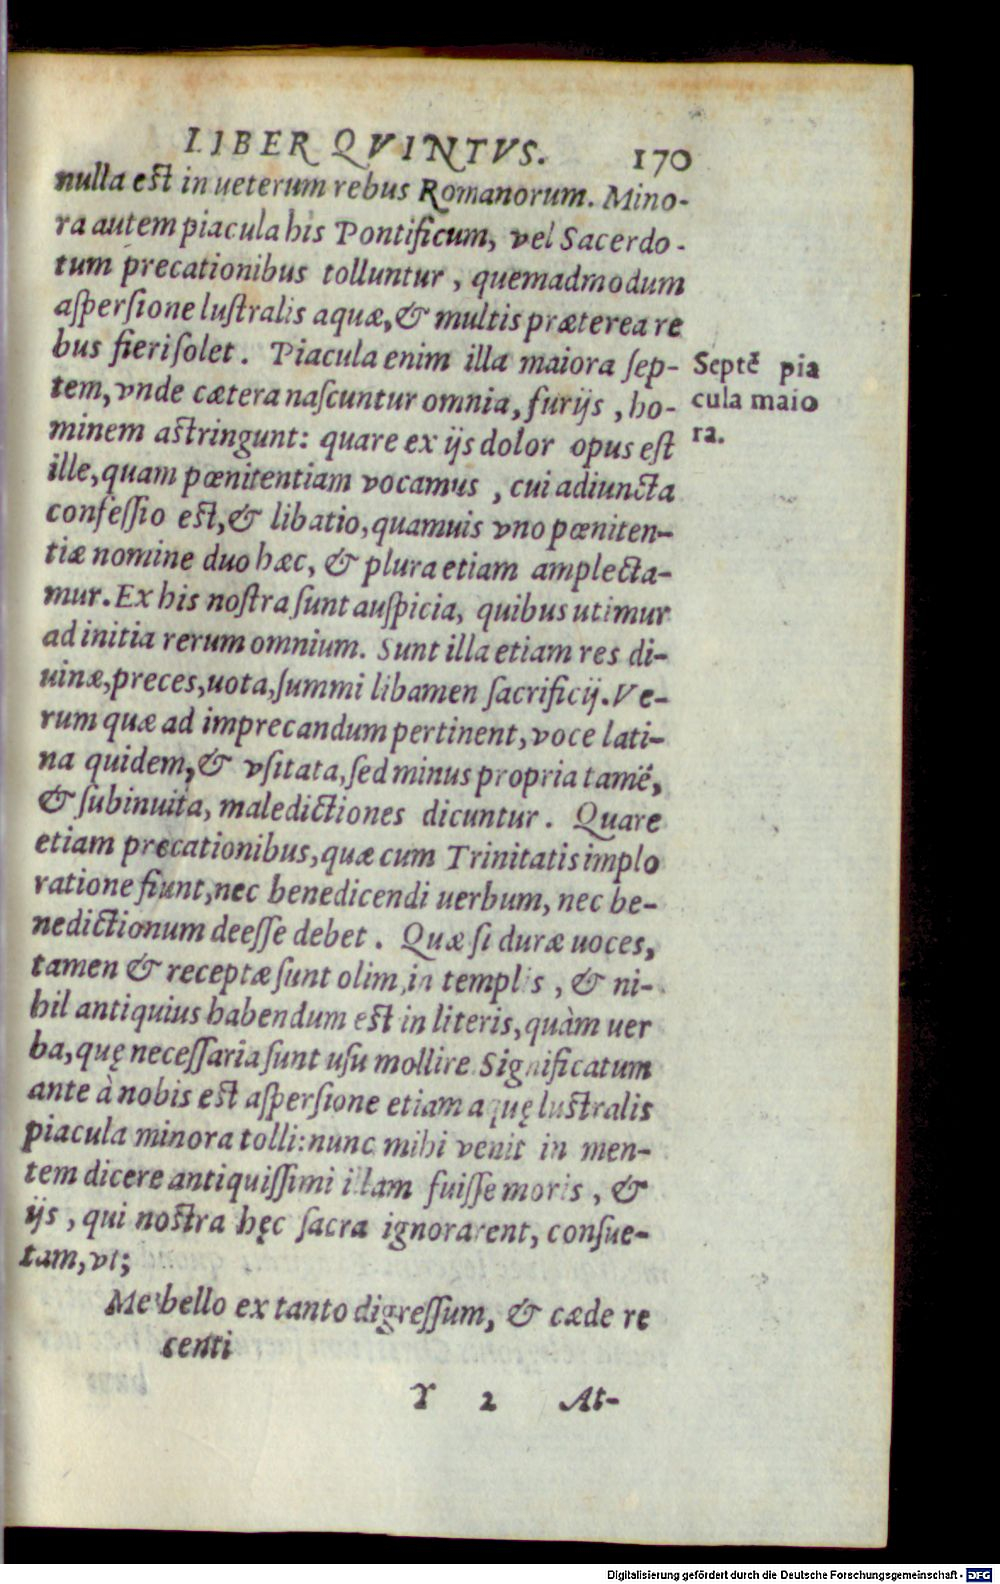 LIBER QVINTVS. 170
nulla est in ueterum rebus Romanorum. Mino-
ra autem piacula his Pontificum, vel Sacerdo-
tum precationibus tolluntur, quemadmodum
aſperſione luſtralis aquæ, & multis præterea re
bus fieri ſolet. Piacula enim illa maiora ſep-
tem, vnde cætera naſcuntur omnia, furijs, ho-
minem astringunt: quare ex ijs dolor opus eſt
ille, quam pœnitentiam vocamus, cui adiuncta
confeſſio est, & libatio, quamuis vno pœniten-
tiæ nomine duo hæc, & plura etiam amplecta-
mur. Ex his noſtra ſunt auſpicia, quibus utimur
ad initia rerum omnium. Sunt illa etiam res di-
uinæ, preces, uota, ſummi libamen ſacrificij. Ve-
rum quæ ad imprecandum pertinent, voce lati-
na quidem, & vſitata, ſed minus propria tamē,
& ſubinuita, maledictiones dicuntur. Quare
etiam precationibus, quæ cum Trinitatis implo
ratione fiunt, nec benedicendi uerbum, nec be-
nedictionum deeſſe debet. Quæ ſi duræ uoces,
tamen & receptæ ſunt olim, in templis, & ni-
hil antiquius habendum est in literis, quàm uer
ba, quę neceſſaria ſunt uſu mollire. Significatum
ante à nobis est aſperſione etiam aquę lustralis
piacula minora tolli: nunc mihi venit in men-
tem dicere antiquiſſimi illam fuiſſe moris, &
ijs, qui nostra hęc ſacra ignorarent, conſue-
tam, vt;
Me bello ex tanto digreſſum, & cæde re
centi
Y 2 At-
Septē pia
cula maio
ra.
Digitalisierung gefördert durch die Deutsche Forschungsgemeinschaft - DFG